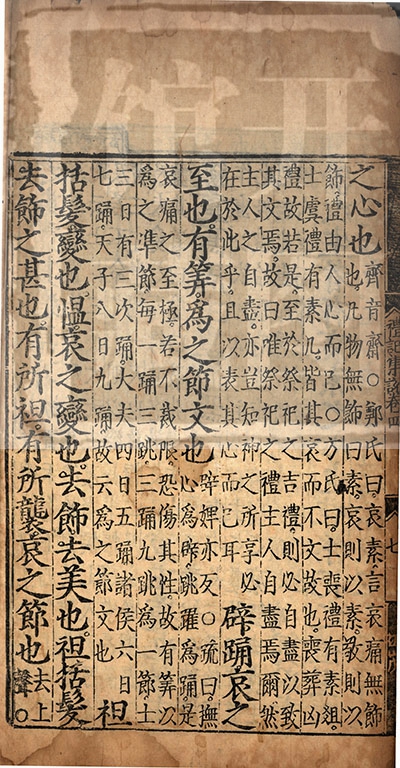 禮記集說卷四
七
之心也
齊音齋○鄭氏曰哀素言哀痛無飾
也凡物無飾曰素哀則以素敬則以
飾禮由人心而已○方氏曰士喪禮有素俎
士虞禮有素几皆其哀而不文故也喪葬凶
禮故若是至於祭祀之吉禮則必自盡以致
其文焉故曰唯祭祀之禮主人自盡焉爾然
主人之自盡亦豈知神之所享必
在於此乎且以表其心而已耳
辟踊哀之
至也有筭爲之節文也
辟婢亦反○疏曰撫
心爲辟跳躍爲踊是
哀痛之至極若不裁限恐傷其性故有筭以
爲之准節每一踊三跳三踊九跳爲一節士
三日有三次踊大夫四日五踊諸侯六日
七踊天子八日九踊故云爲之節文也
袒
括髮變也慍哀之變也去飾去美也袒括髮
去飾之甚也有所袒有所襲哀之節也
去上
聲○